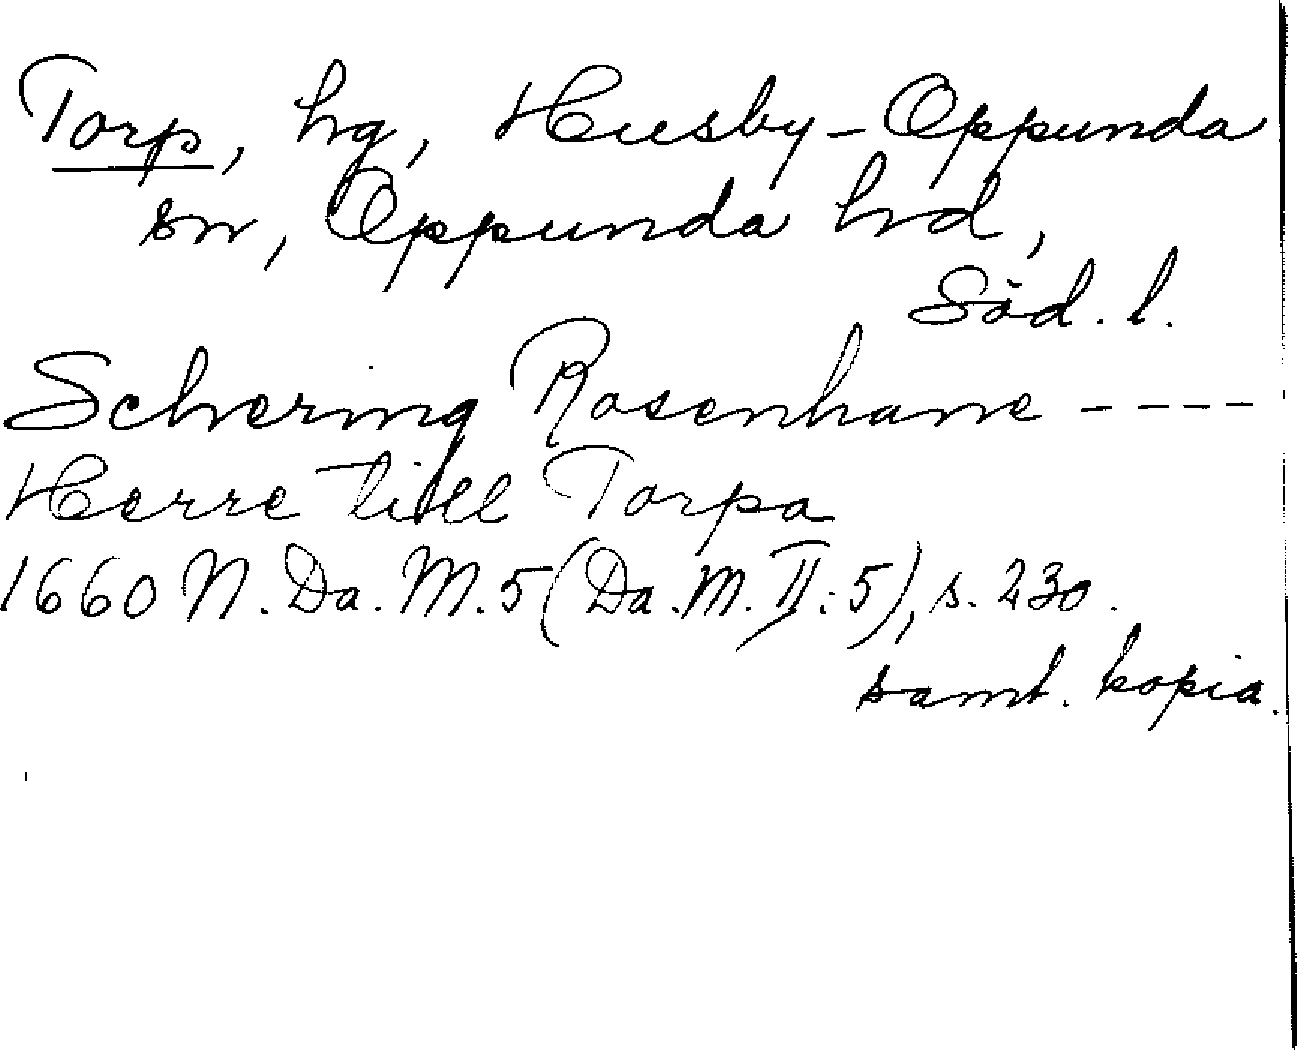 Torp, hg, Husby-Oppunda
sn, Oppunda hd,
Söd. l.
Schering Rosenhane ----
Herre till Torpa
1660 N. Da. M. 5 (Da. M. II: 5), s. 230.
samt. kopia.